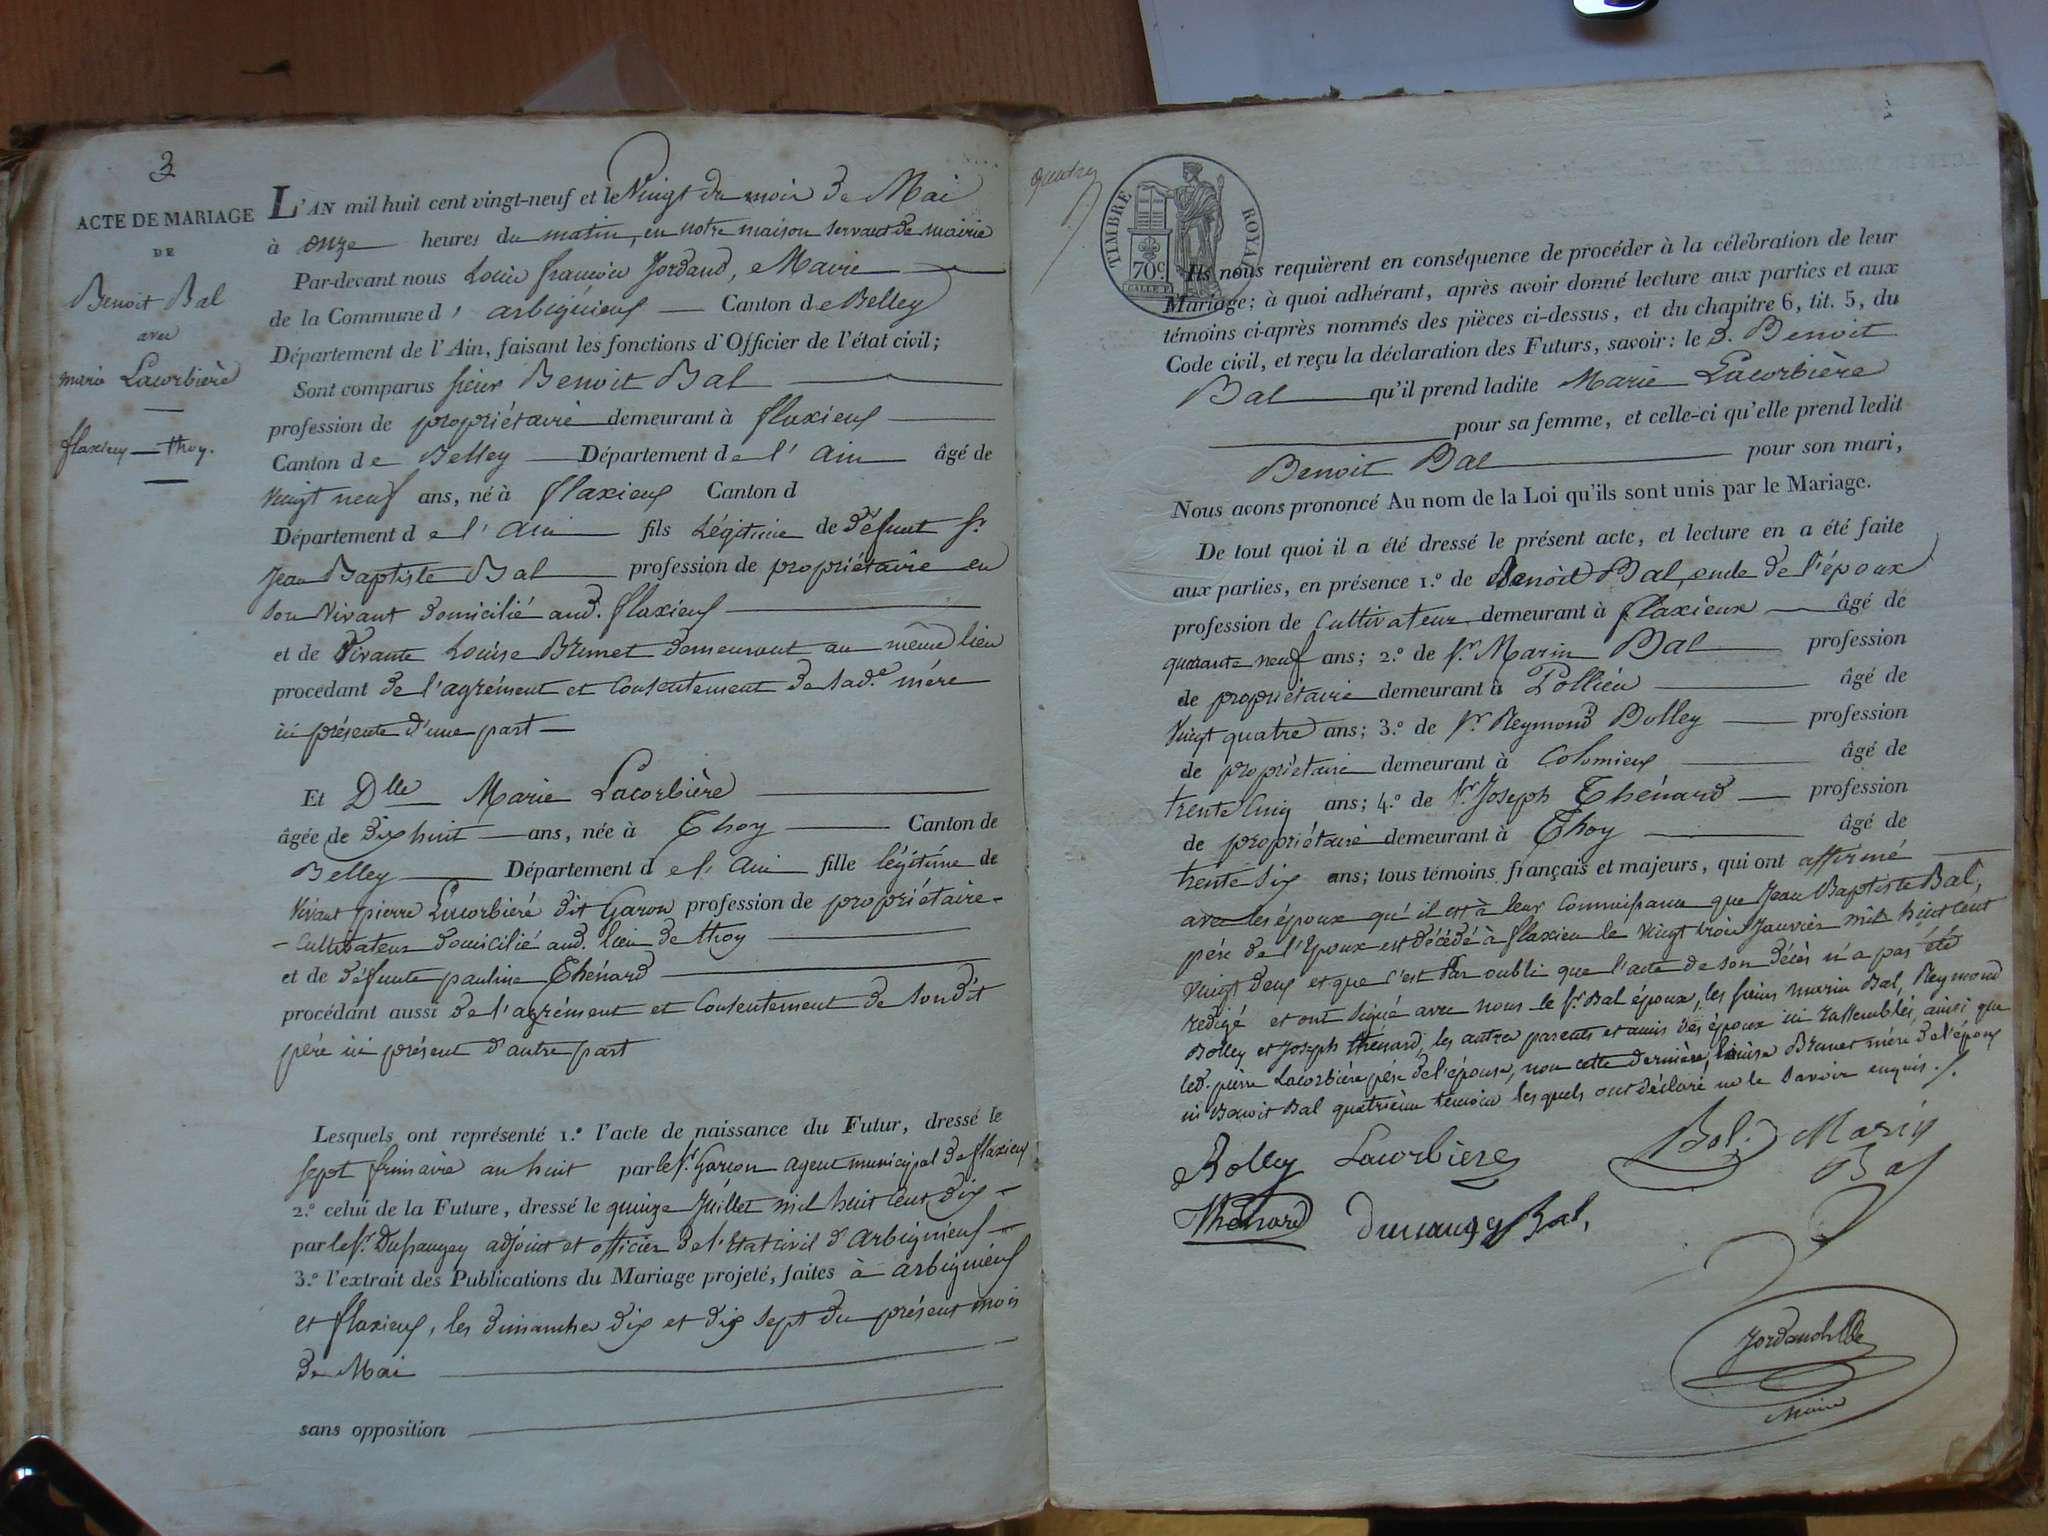 3
ACTE DE MARIAGE
DE
Benoit Bal
avec
marie Lacorbière
flaxieux — thoy.
L'AN mil huit cent vingt-neuf et le Vingt du mois de Mai
à onze heures du matin, en notre maison servant de mairie
Par-devant nous Louis françois Jordand, Maire
de la Commune d'arbignieux — Canton de Belley
Département de l'Ain, faisant les fonctions d'Officier de l'état civil;
Sont comparus sieur Benoit Bal
profession de propriétaire demeurant à flaxieux
Canton de Belley — Département de l'ain âgé de
Vingt neuf ans, né à flaxieux Canton d
Département de l'ain fils Légitime de défunt Sr
Jean Baptiste Bal profession de propriétaire en
son vivant domicilié aud. flaxieux
et de Vivante Louise Brunet demeurant au même lieu
procédant de l'agrément et consentement de sad.e mère
ici présente d'une part —
Et Dlle Marie Lacorbière
âgée de dix huit ans, née à Thoy Canton de
Belley Département de l'ain fille légitime de
Vivant pierre Lacorbière dit Garon profession de propriétaire-
- Cultivateur domicilié aud. lieu de thoy
et de défunte pauline Thénard
procédant aussi de l'agrément et Consentement de son dit
père ici présent d'autre part
Lesquels ont représenté 1.º l'acte de naissance du Futur, dressé le
sept frimaire an huit par le Sr Garcon agent municipal de flaxieux
2.º celui de la Future, dressé le quinze Juillet mil huit cent dix -
par le Sr. Dufraugey adjoint et officier de l'Etat civil d'Arbignieux -
3.º l'extrait des Publications du Mariage projeté, faites à arbignieux
et flaxieux, les dimanches dix et dix sept du présent mois
de Mai
sans opposition
TIMBRE ROYAL
70c
Ils nous requièrent en conséquence de procéder à la célébration de leur
Mariage; à quoi adhérant, après avoir donné lecture aux parties et aux
témoins ci-après nommés des pièces ci-dessus, et du chapitre 6, tit. 5, du
Code civil, et reçu la déclaration des Futurs, savoir: le d. Benoit
Bal qu'il prend ladite Marie Lacorbière
pour sa femme, et celle-ci qu'elle prend ledit
Benoit Bal pour son mari,
Nous avons prononcé Au nom de la Loi qu'ils sont unis par le Mariage.
De tout quoi il a été dressé le présent acte, et lecture en a été faite
aux parties, en présence 1.º de Benoit Bal, oncle de l'époux
profession de Cultivateur demeurant à flaxieux âgé de
quarante neuf ans; 2.º de Sr. Marin Bal profession
de propriétaire demeurant à Pollieu âgé de
Vingt quatre ans; 3.º de Sr. Reymond Bolley profession
de propriétaire demeurant à Colomieux âgé de
trente cinq ans; 4.º de Sr. Joseph Thénard profession
de propriétaire demeurant à Thoy âgé de
trente six ans; tous témoins français et majeurs, qui ont affirmé
avec les époux qu'il est à leur Connaissance que Jean Baptiste Bal,
père de l'Epoux est décédé à flaxieu le Vingt trois Janvier mil huit cent
Vingt deux et que c'est Par oubli que l'acte de son décès n'a pas été
redigé et ont signé avec nous le Sr. Bal époux, les sieurs marin Bal, Reymond
Bolley et Joseph thénard, les autres parents et amis des époux ici rassemblés, ainsi que
led. pierre Lacorbière père de l'épouse, non cette dernière, Louise Brunet mère de l'époux
ni Benoit Bal quatrième temoin lesquels ont déclaré ne le savoir enquis./.
Bolley Lacorbiere Bal Marin
Bal
Thénard Bal,
Maire